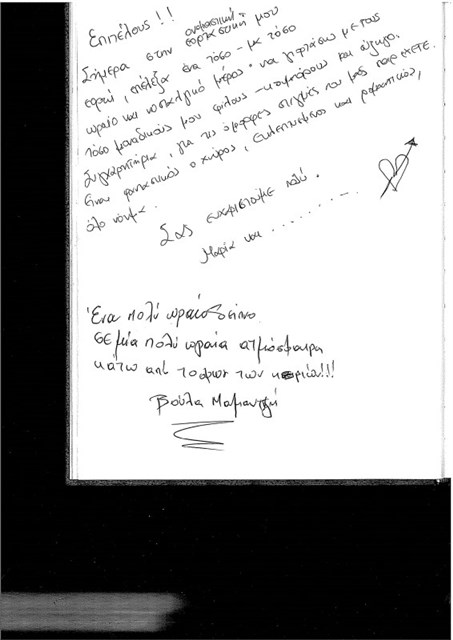 Επιτέλους!!
Σήμερα στην ονομαστική εορταστική μου
εορτή, επέλεξα ένα τόσο - με τόσο
ωραίο και νοσταλγικό μέρος να γιορτάσω με τους
τόσο μοναδικούς μου φίλους - κουμπάρους και σύζυγο.
Συγχαρητήρια, για τις όμορφες στιγμές που μας παρέχετε.
Είναι φανταστικός ο χώρος, και ρομαντικός,
όλο νόημα.
Σας ευχαριστούμε πολύ.
Μαρία και ..........
Ένα πολύ ωραίο δείπνο
σε μία πολύ ωραία ατμόσφαιρα
κάτω απ' το φως των κεριών!!!
Βούλα